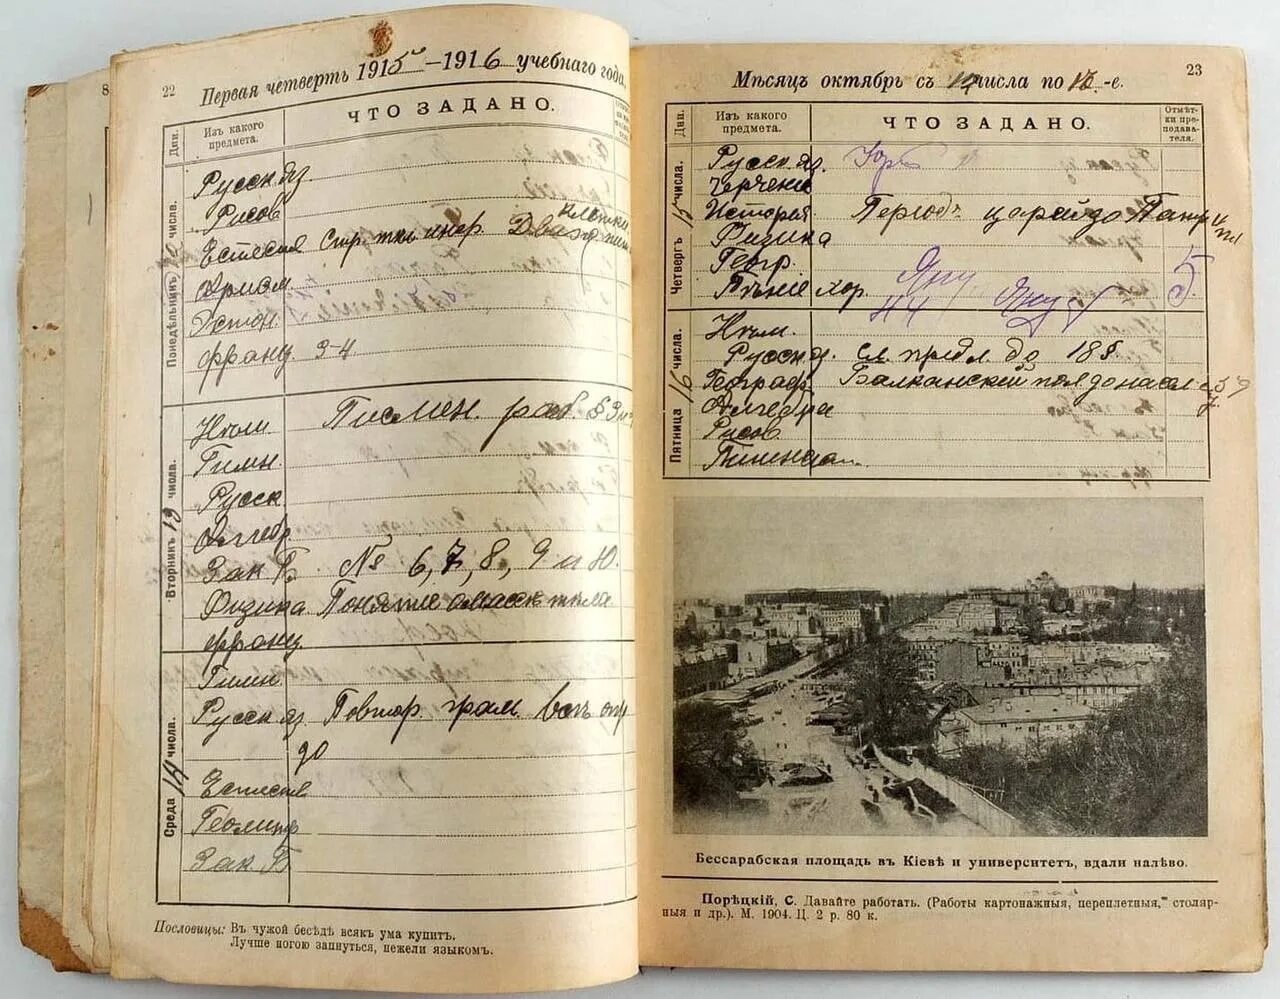 22
Первая четверть 1915–1916 учебнаго года.
Дни.
Изъ какого предмета.
ЧТО ЗАДАНО.
Понедѣльникъ числа.
Русск яз.
Рисов
Естествя Стр.
клетки
Ариѳм.
франц. 3-4
Вторникъ 13 числа.
Нѣм. Писмен. раб. § 3
Гимн.
Русск
Алгебр
Зак. Б. № 6, 7, 8, 9 и 10.
Физика Понятие о масск тѣла
франц.
Среда 14 числа.
Гимн.
Русск яз Повтор. грам. всѣ
до
Естеств
Геометр
Зак. Б
Пословицы: Въ чужой бесѣдѣ всякъ ума купитъ.
Лучше ногою запнуться, нежели языкомъ.
23
Мѣсяцъ октябрь съ 12 числа по 18-е.
Дни.
Изъ какого предмета.
ЧТО ЗАДАНО.
Отмѣтки преподавателя.
Четвергъ 15 числа.
Русск яз.
Черчение
История Период царей до
Физика
Геогр.
Пѣние хор
5
Пятница 16 числа.
Нѣм.
Русск яз. сл. предл до 18 §.
Географ. Балканский
Алгебра
Рисов.
Бессарабская площадь въ Кіевѣ и университетъ, вдали налѣво.
Порѣцкій, С. Давайте работать. (Работы картонажныя, переплетныя, столяр-
ныя и др.). М. 1904. Ц. 2 р. 80 к.